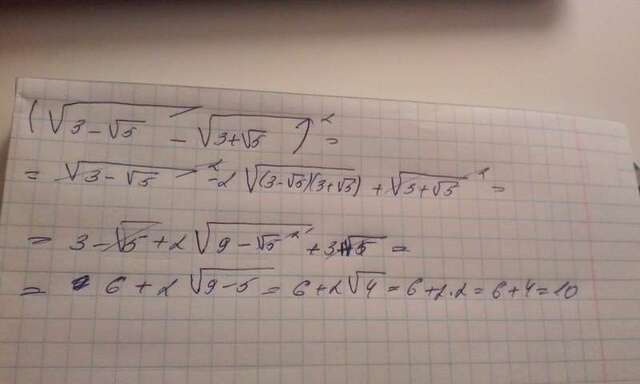 (√(3-√5) - √(3+√5))² =
= √(3-√5)² - 2√((3-√5)(3+√5)) + √(3+√5)² =
= 3-√5 + 2√(9-√5²) + 3+√5 =
= 6 + 2√(9-5) = 6+2√4 = 6+2·2 = 6+4 = 10